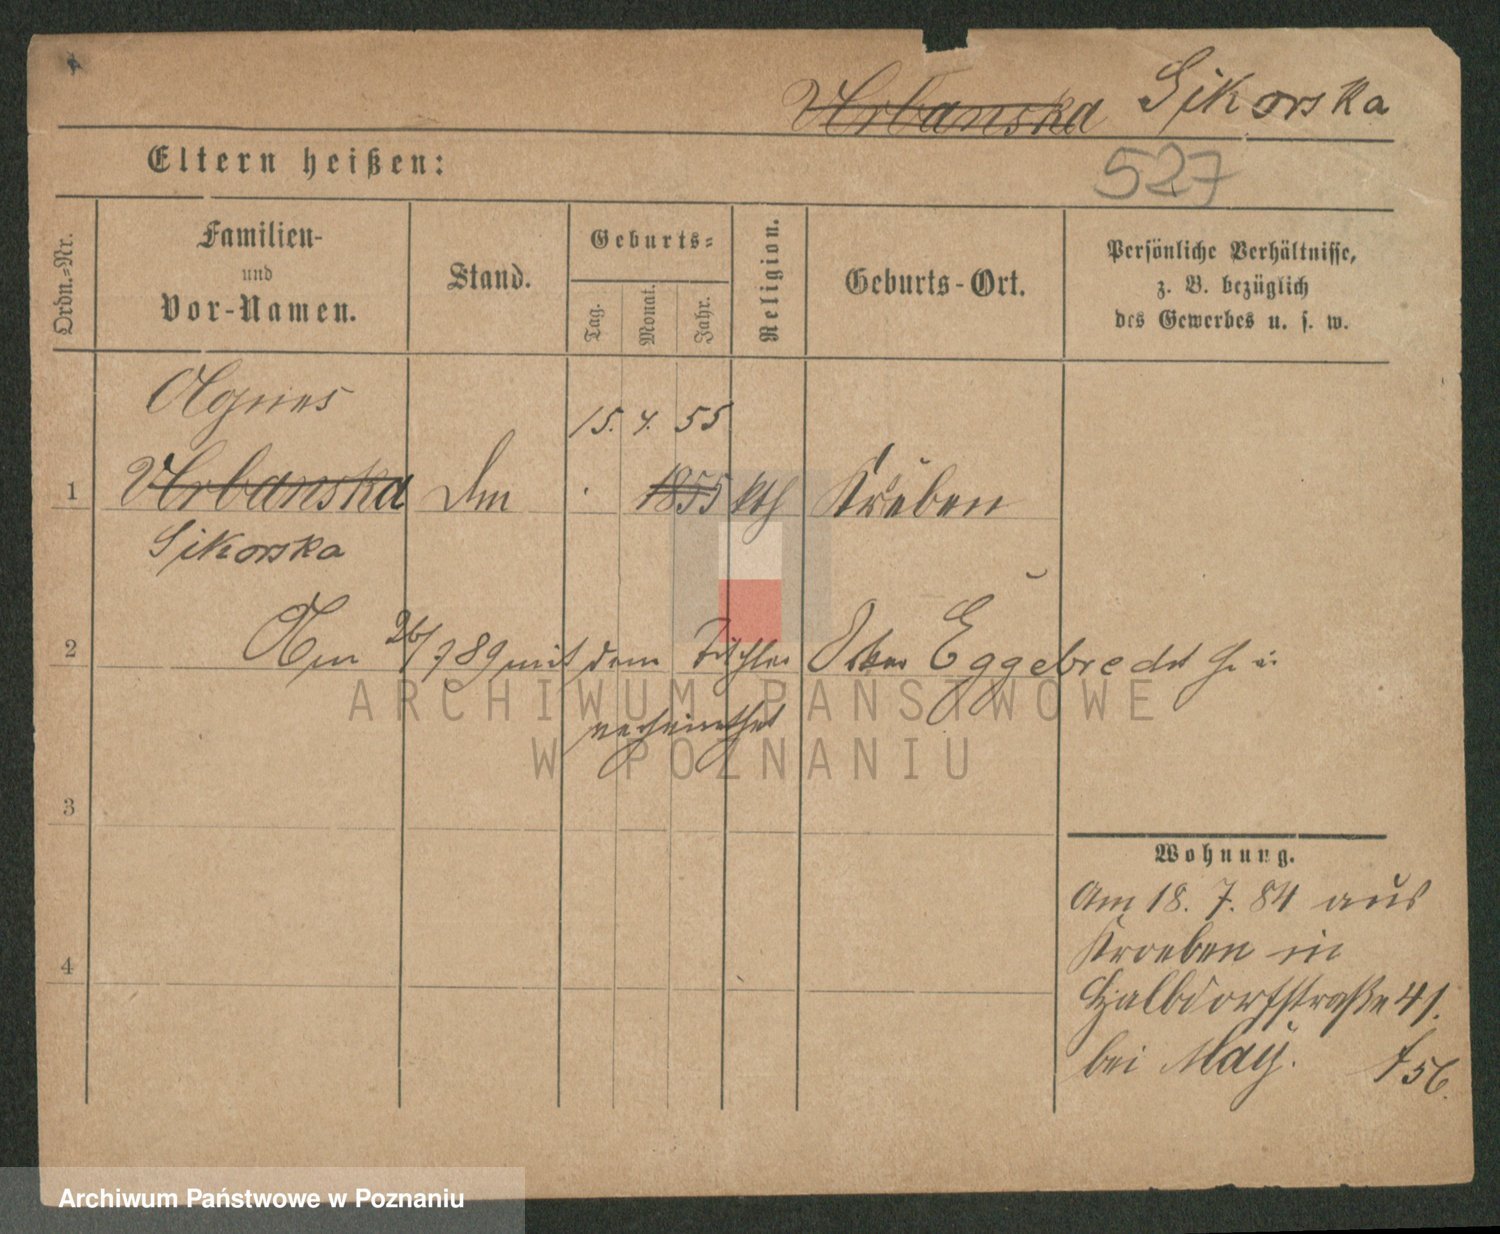 Urbanska Sikorska
Eltern heißen:
527
Ordn.-Nr.
Familien-
und
Vor-Namen.
Stand.
Geburts-
Tag.
Monat.
Jahr.
Religion.
Geburts-Ort.
Persönliche Verhältnisse,
z. B. bezüglich
des Gewerbes u. s. w.
Agnes
15. 4. 55
1 Urbanska 1855 kth Kröben
Sikorska
2 Am 26/7 89 mit dem Tischler Eggebrecht
verheirathet
ARCHIWUM PAŃSTWOWE
W POZNANIU
3
Wohnung.
Am 18. 7. 84 aus
Kroeben in
4 Halbdorfstraße 41.
bei May. f 56.
Archiwum Państwowe w Poznaniu